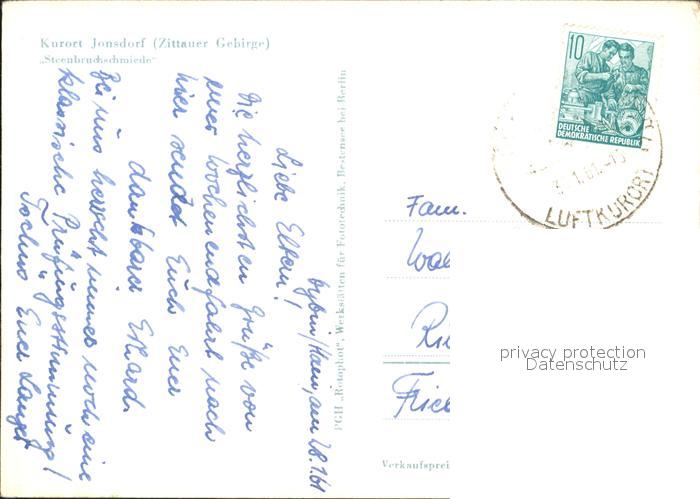 Kurort Jonsdorf (Zittauer Gebirge)
„Steenbruchschmiede"
Oybin/Hain, am 28.1.61
Liebe Eltern!
Die herzlichsten Grüße von
einer Wochenendfahrt nach
hier sendet Euch Euer
dankbarer Ekhard.
Bei uns herrscht immer noch eine
klassische Prüfungsstimmung!
Tschüs Euer
PGH „Rotophot", Werkstätten für Fototechnik, Bestensee bei Berlin
10
DEUTSCHE
DEMOKRATISCHE REPUBLIK
LUFTKURORT
Fam.
Verkaufsprei
privacy protection
Datenschutz